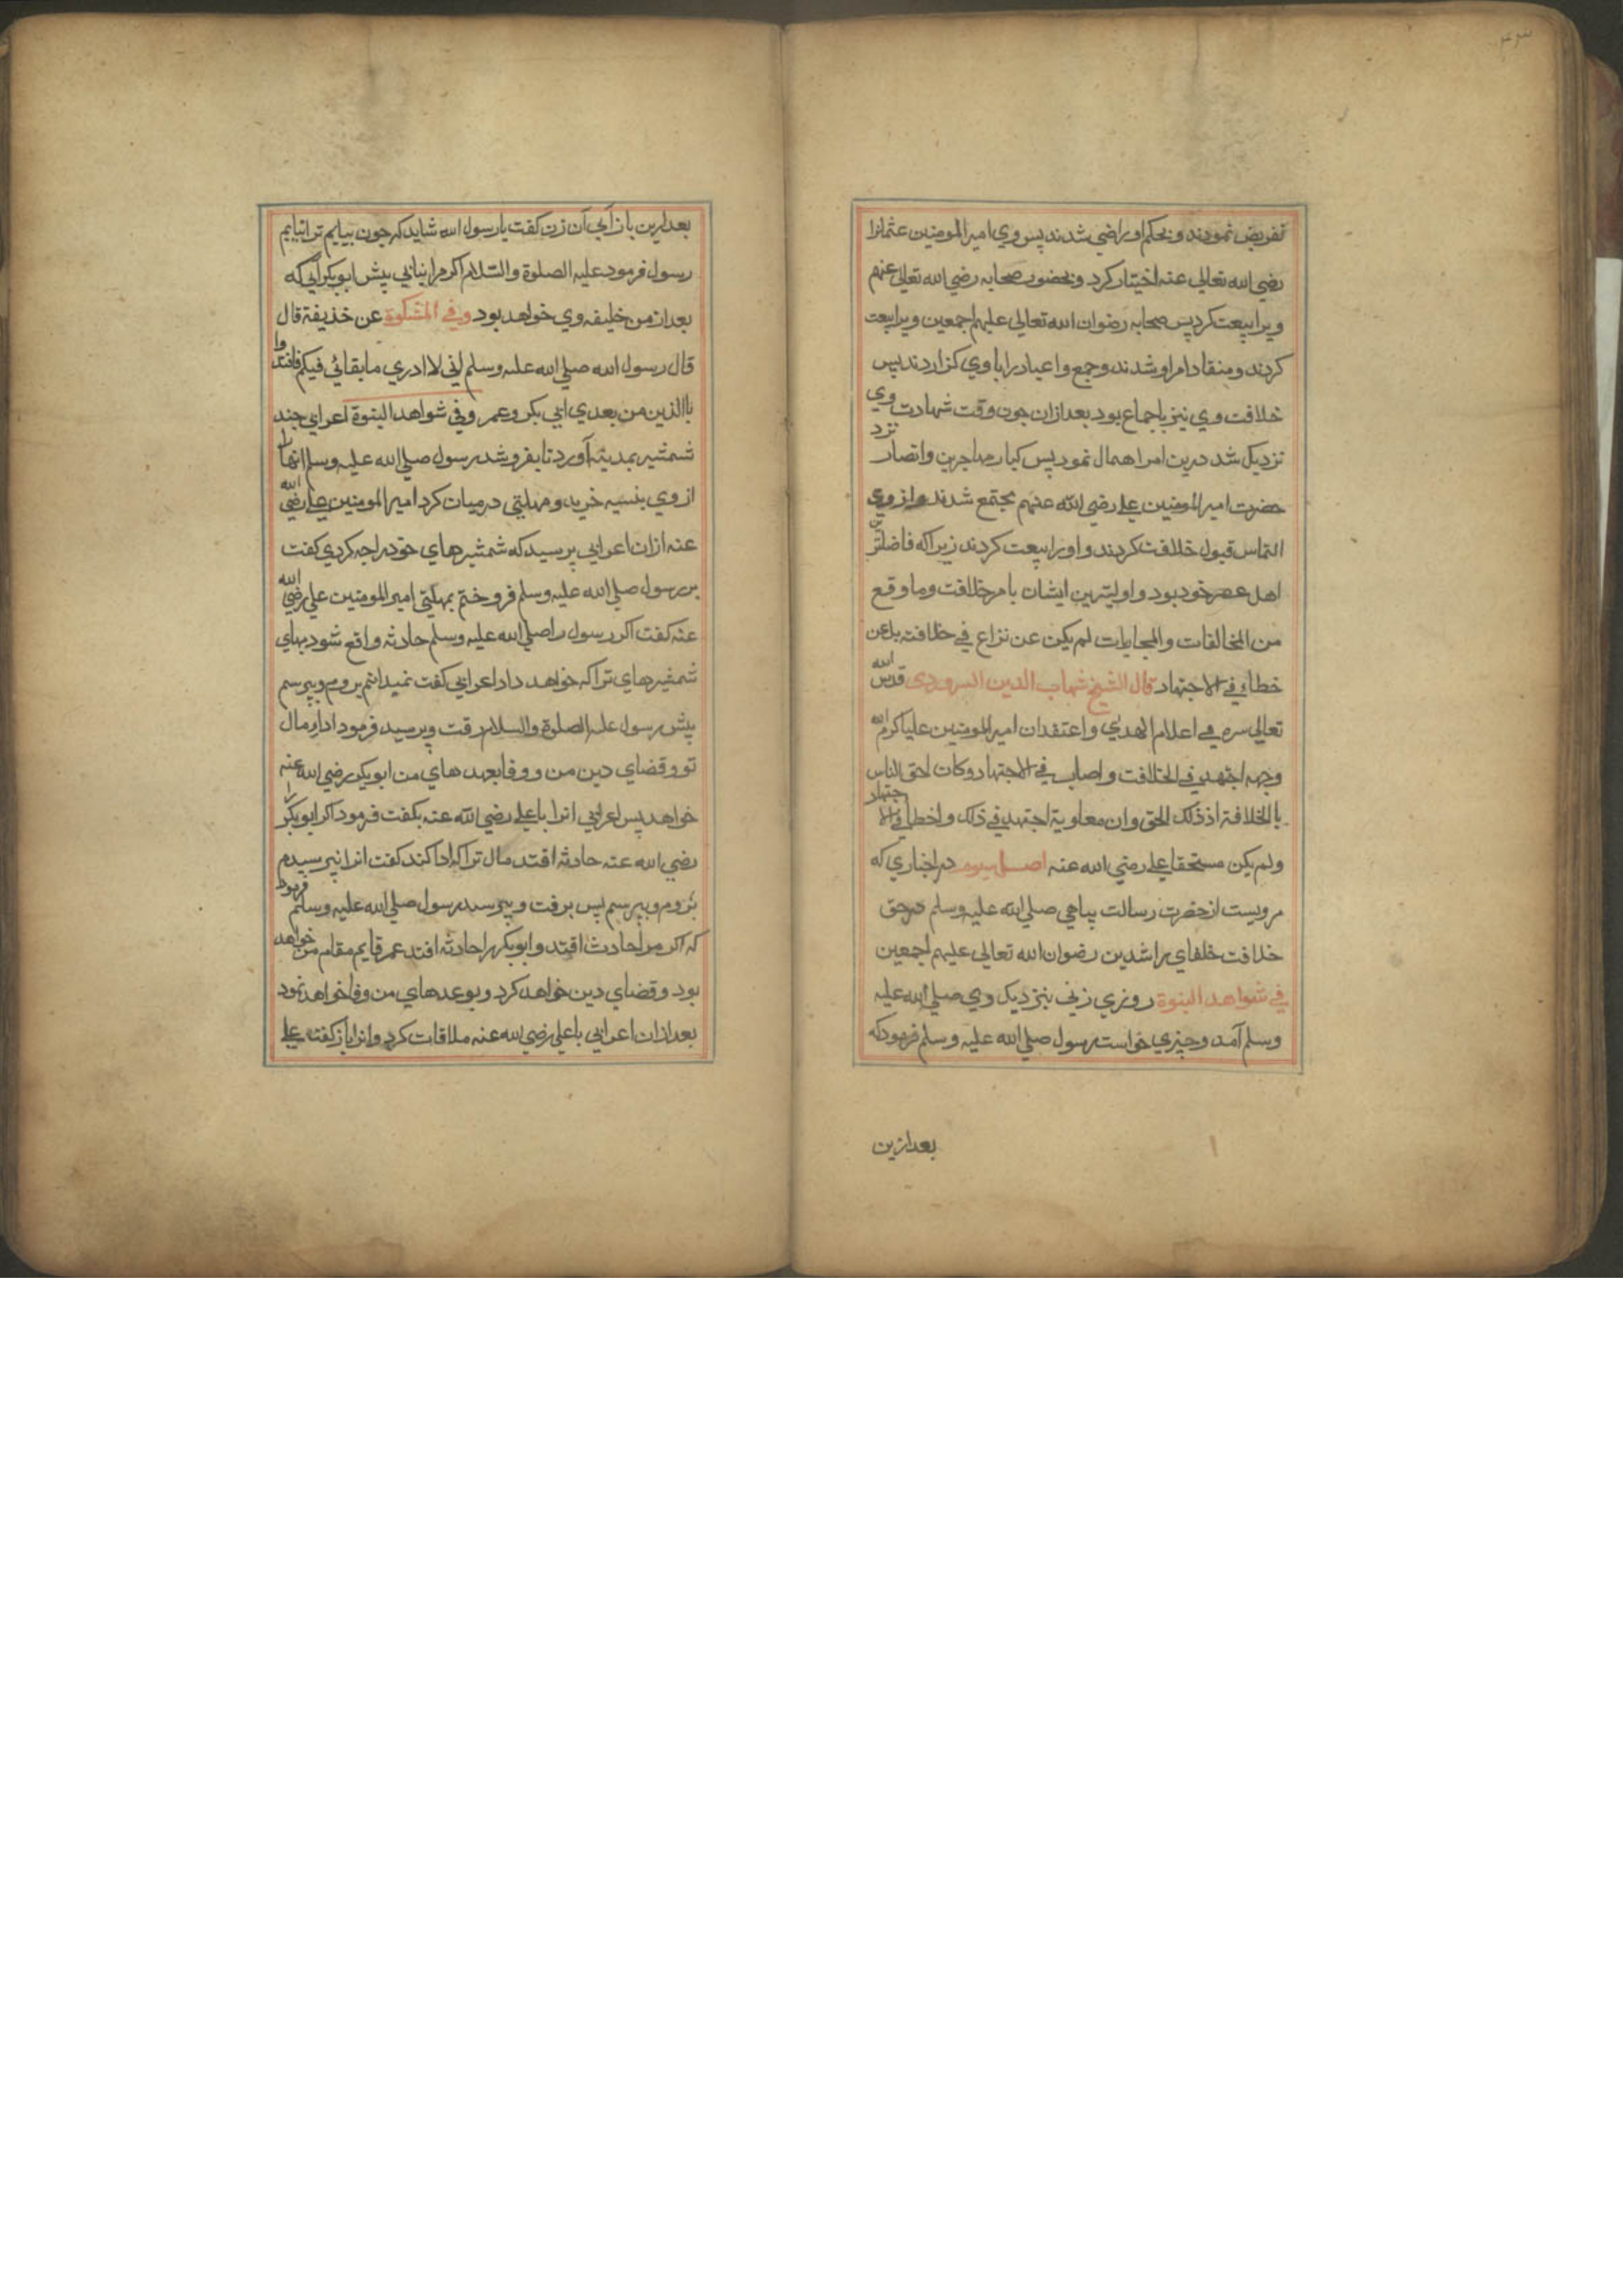 ۴۳
تفریض نمودند و بحکم او راضي شدند پس وي امیر المومنین عثمانرا
رضي الله تعالي عنه اختیار کرد و بحضور صحابه رضي الله تعالی عنهم
ویرا بیعت کرد پس صحابه رضوان الله تعالی علیهم اجمعین ویرا بیعت
کردند و منقاد امر او شدند و جمع و اعیاد را با وي گزاردند پس
خلافت وي نیز باجماع بود بعد ازان چون وقت شهادت وي
نزدیک شد درین امر اهمال نمود پس کبار مهاجرین و انصار نزد
حضرت امیر المومنین علي رضي الله عنهم مجتمع شدند و از وي
التماس قبول خلافت کردند و او را بیعت کردند زیراکه فاضلترین
اهل عصر خود بود و اولیترین ایشان بامر خلافت وما وقع
من المخالفات والمحابات لم یکن عن نزاع في خلافته بل عن
خطاء في الاجتهاد قال الشیخ شهاب الدین السروردی قدس الله
تعالی سره في اعلام الهدي و اعتقد ان امیر المومنین علیا کرم الله
وجهه اجتهد في الخلافت و اصاب في الاجتهاد وکان احق الناس
بالخلافة اذ ذلک الحق وان معاویة اجتهد في ذلک و اخطا في الاجتهاد
ولم یکن مستحقا علي رضي الله عنه اصل سیوم در اخباري که
مرویست از حضرت رسالت پناهي صلي الله علیه وسلم در حق
خلافت خلفاي راشدین رضوان الله تعالی علیهم اجمعین
في شواهد النبوة روزي زني بنزدیک وي صلي الله علیه
وسلم آمد و چیزي خواست رسول صلي الله علیه وسلم فرمود که
بعد ازین
بعد ازین باز آي آن زن کفت یا رسول الله شاید که چون بیایم ترا نیابم
رسول فرمود علیه الصلوة والسلام اکر مرا نیابي پیش ابوبکر آي که
بعد از من خلیفه وي خواهد بود وفي المشکوة عن خذیفة قال
قال رسول الله صلي الله علیه وسلم اني لا ادري ما بقائي فیکم فاقتدوا
باالذین من بعدي ابي بکر وعمر وفي شواهد النبوة اعرابي چند
شمشیر بمدینه آورد تا بفروشد رسول صلي الله علیه وسلم انها را
از وي بنسیه خرید و مهلتي درمیان کرد امیر المومنین علي رضي الله
عنه ازان اعرابي پرسید که شمشیرهاي خود را چه کردي کفت
بر رسول صلي الله علیه وسلم فروختم بمهلتي امیر المومنین علي رضي الله
عنه کفت اکر رسول را صلي الله علیه وسلم حادثه واقع شود بهاي
شمشیرهاي ترا که خواهد داد اعرابي کفت نمیدانم بروم و بپرسم
پیش رسول علیه الصلوة والسلام رفت و پرسید فرمود اداي مال
تو و قضاي دین من و وفا بعهدهاي من ابوبکر رضي الله عنه
خواهد پس اعرابي انرا با علي رضي الله عنه بکفت فرمود اکر ابوبکر را
رضي الله عنه حادثه افتد مال ترا که ادا کند کفت انرا نپرسیدم
بروم و بپرسم پس برفت و بپرسید رسول صلي الله علیه وسلم فرمود
که اکر مرا حادث افتد و ابوبکر را حادثه افتد عمر قایم مقام من خواهد
بود و قضاي دین خواهد کرد و بوعدهاي من وفا خواهد نمود
بعد ازان اعرابي با علي رضي الله عنه ملاقات کرد و انرا باز کفت علي